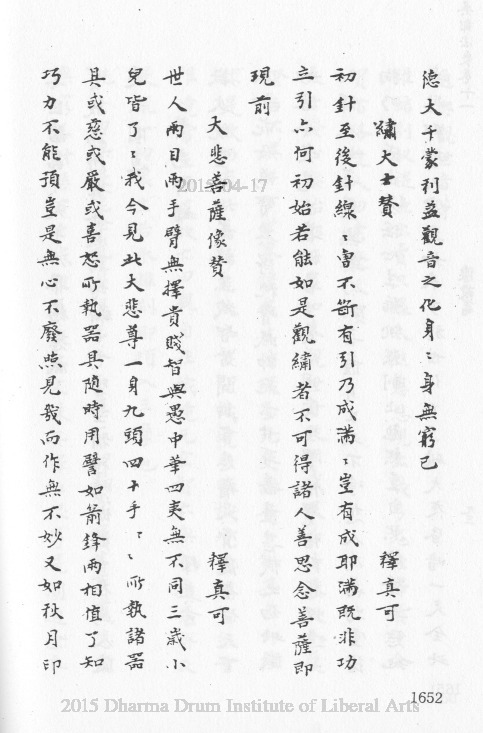 德大千蒙利益觀音之化身〻身無窮已
繡大士贊　釋真可
初針至後針線〻曾不斷有引乃成滿〻豈有成耶滿既非功
立引亦何初始若能如是觀繡者不可得諸人善思念菩薩即
現前
大悲菩薩像贊　釋真可
世人兩目兩手臂無擇貴賤智與愚中華四夷無不同三歲小
兒皆了〻我今見此大悲尊一身九頭四十手〻〻所執諸器
具或惡或嚴或喜怒所執器具隨時用譬如箭鋒兩相值了知
巧力不能預豈是無心不廢照見幾而作無不妙又如秋月印
1652
2015-04-17
2015 Dharma Drum Institute of Liberal Arts